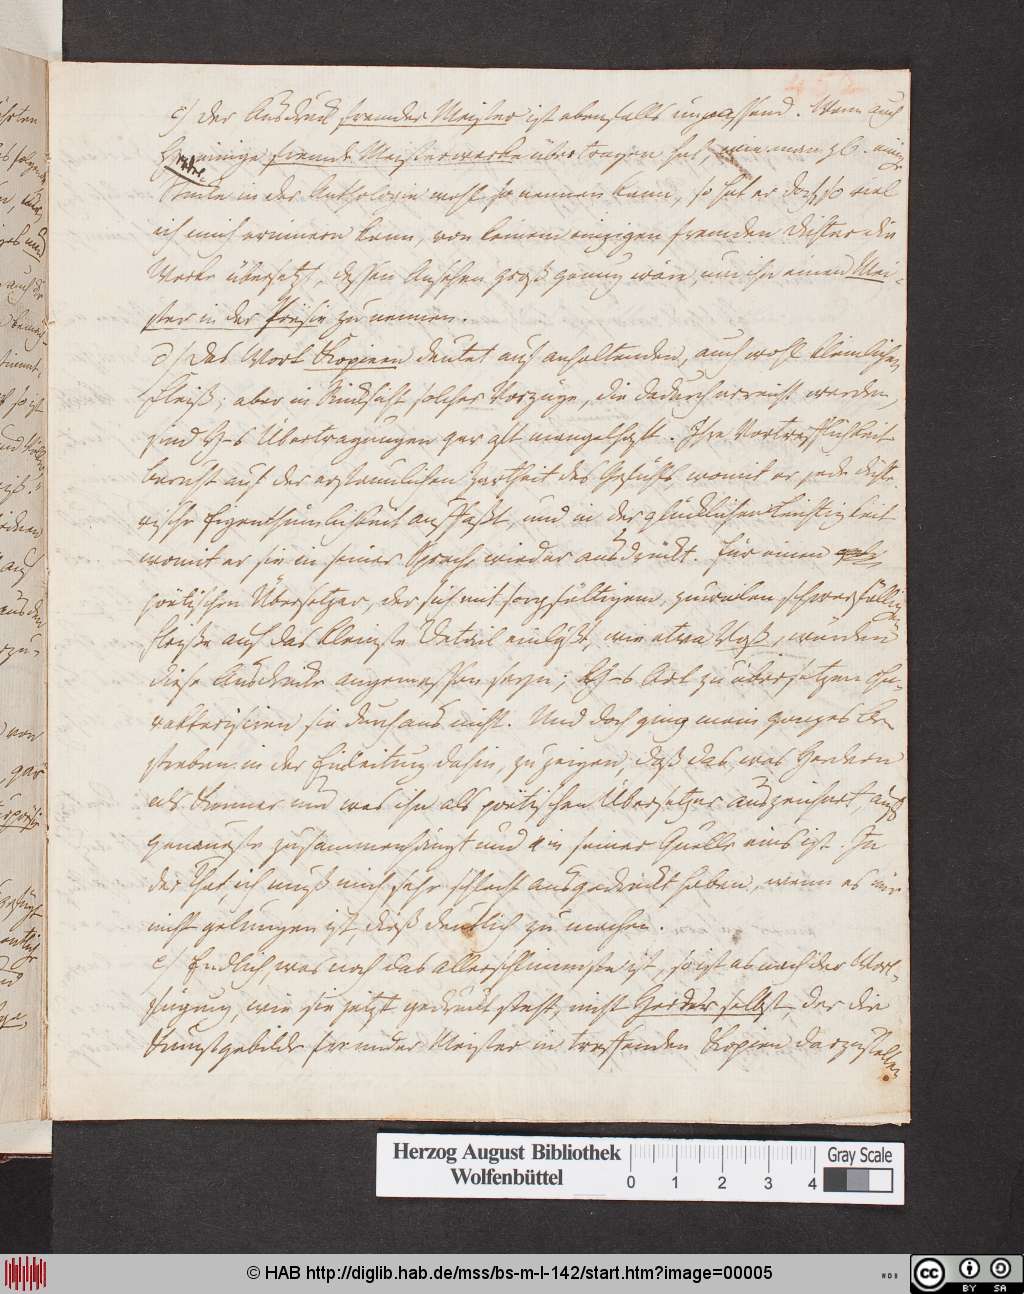 c) Der Ausdruck fremder Meister ist ebenfalls unpassend. Wenn auch
H. einige fremde Meisterwerke übertragen hat, wie man z.B. einige
Stücke in der Anthologie wohl so nennen kann, so hat er doch, so viel
ich mich erinnern kann, von keinem einzigen fremden Dichter die
Werke übersetzt, dessen Ansehen groß genug wäre, um ihn einen Mei-
ster in der Poesie zu nennen.
d) Das Wort Kopieen deutet auf anhaltenden, auch wohl kleinlichen
Fleiß; aber in Rücksicht solcher Vorzüge, die dadurch erreicht werden,
sind H-s Übertragungen gar oft mangelhaft. Ihre Vortrefflichkeit
beruht auf der erstaunlichen Zartheit des Gefühls womit er jede dichte
rische Eigenthümlichkeit auffaßt, und in der glücklichen Leichtigkeit
womit er sie in seiner Sprache wieder ausdrückt. Für einen
poëtischen Übersetzer, der sich mit sorgfältigem, zuweilen schwerfälligen
Fleiße auf das kleinste Detail einläßt, wie etwa Voß, würden
diese Ausdrücke angemessen seyn; H-s Art zu übersetzen cha-
rakterisiren sie durchaus nicht. Und doch ging mein ganzes Be
streben in der Einleitung dahin, zu zeigen, daß das was Herdern
als Kenner und was ihn als poëtischen Übersetzer auszeichnet, aufs
genaueste zusammenhängt und in seiner Quelle eins ist. In
der That, ich muß mich sehr schlecht ausgedrückt haben, wenn es mir
nicht gelungen ist, dieß deutlich zu machen.
e) Endlich, was noch das allerschlimmste ist, so ist es nach der Wort-
fügung, wie sie jetzt gedruckt steht, nicht Herder selbst, der die
Kunstgebilde fremder Meister in treffenden Kopien darzustellen
Herzog August Bibliothek
Wolfenbüttel
0 1 2 3 4
Gray Scale
© HAB http://diglib.hab.de/mss/bs-m-l-142/start.htm?image=00005
WDB
cc BY SA